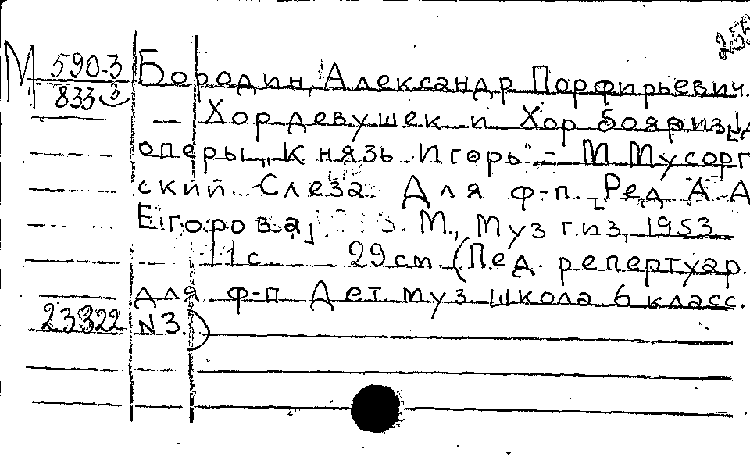 М 590-3 Бородин, Александр Порфирьевич.
833
— Хор девушек и Хор бояр из
оперы „Князь Игорь" - М Мусорг
ский Слеза Для ф-п. [Ред А А
Егорова] М., Музгиз, 1953
11 с 29 см (Пед. репертуар
для ф-п Дет. муз школа 6 класс.
23322 N3.)